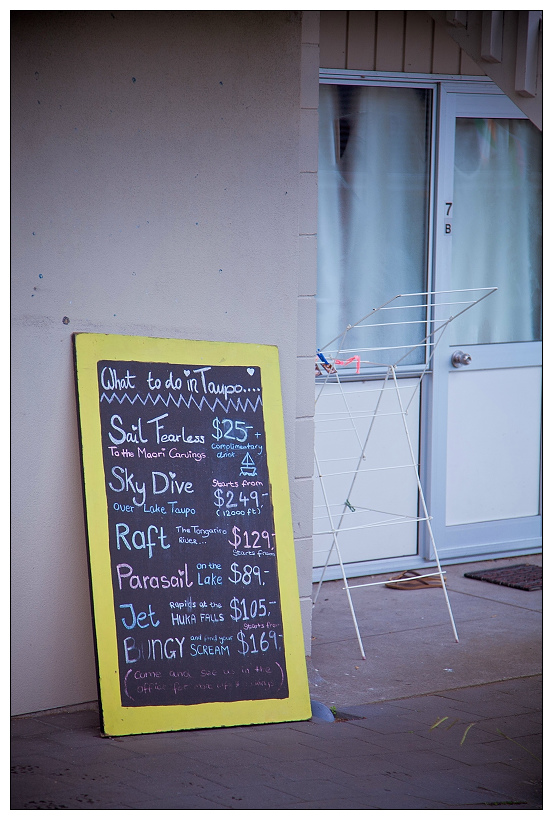 What to do in Taupo....
Sail Fearless $25-+
To the Maori Carvings complimentary drink
Sky Dive Starts from
$249,-
over Lake Taupo (12000ft)
Raft The Tongariro River... $129,
Starts from
Parasail on the Lake $89,-
Jet Rapids at the HUKA FALLS $105,-
Starts from
BUNGY and find your SCREAM $169,-
(Come and see us in the
office for
7
B